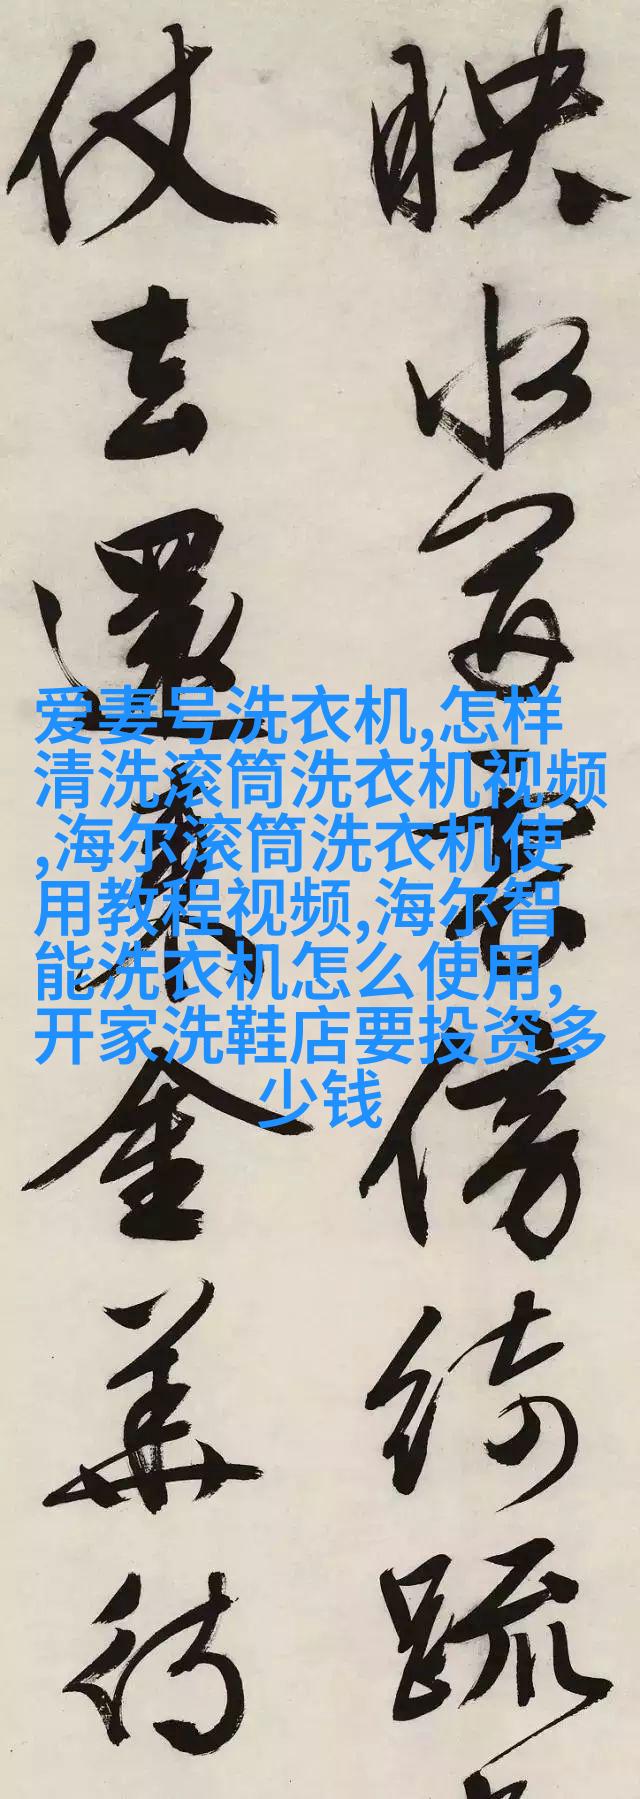 映水
傍綺疏
仗去還來金華待
爱妻号洗衣机,怎样
清洗滚筒洗衣机视频
,海尔滚筒洗衣机使
用教程视频,海尔智
能洗衣机怎么使用,
开家洗鞋店要投资多
少钱